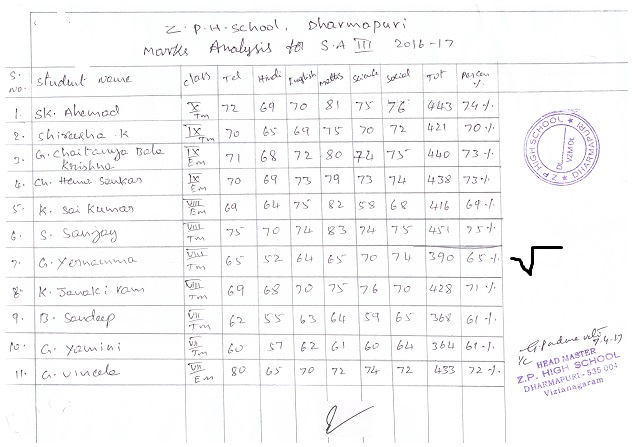 Z.P.H.School, Dharmapuri
Marks Analysis for S.A III 2016-17
S.No. Student Name class Tel Hindi English maths science social Tot Percen %
1. SK. Ahemad X Tm 72 69 70 81 75 76 443 74%
2. Shirasha.K IX Tm 70 65 69 75 70 72 421 70%
3. G. Chaitanya Bala Krishna IX Em 71 68 72 80 74 75 440 73%
4. Ch. Hema Sankar IX Em 70 69 73 79 73 74 438 73%
5. K. Sai Kumar VIII Em 69 64 75 82 58 68 416 69%
6. S. Sanjay VIII Tm 75 70 74 83 74 75 451 75%
7. G. Yernamma VIII Tm 65 52 64 65 70 74 390 65%
8. K. Janaki ram VIII Tm 69 68 70 75 76 70 428 71%
9. B. Sandeep VII Tm 62 55 63 64 59 65 368 61%
10. G. Yamini VII Tm 60 57 62 61 60 64 364 61%
11. G. Vineela VII Em 80 65 70 72 74 72 433 72%
Z.P HIGH SCHOOL ★ DHARMAPURI ★
7.4.17
HEAD MASTER
Z.P. HIGH SCHOOL
DHARMAPURI - 535 004
Vizianagaram